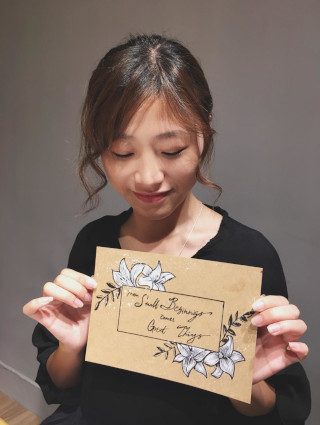 From Small Beginnings
comes
Great Things